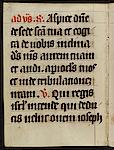 ad vs. R. Aspice dñe
de sede sca tua et cogita
de nobis inclina
ds ms aurem tuam
et audi. aperi oculos tuos
et vide tribulationem
nram. V. Qui regis
isrl intende qui deducis
velut ovem ioseph